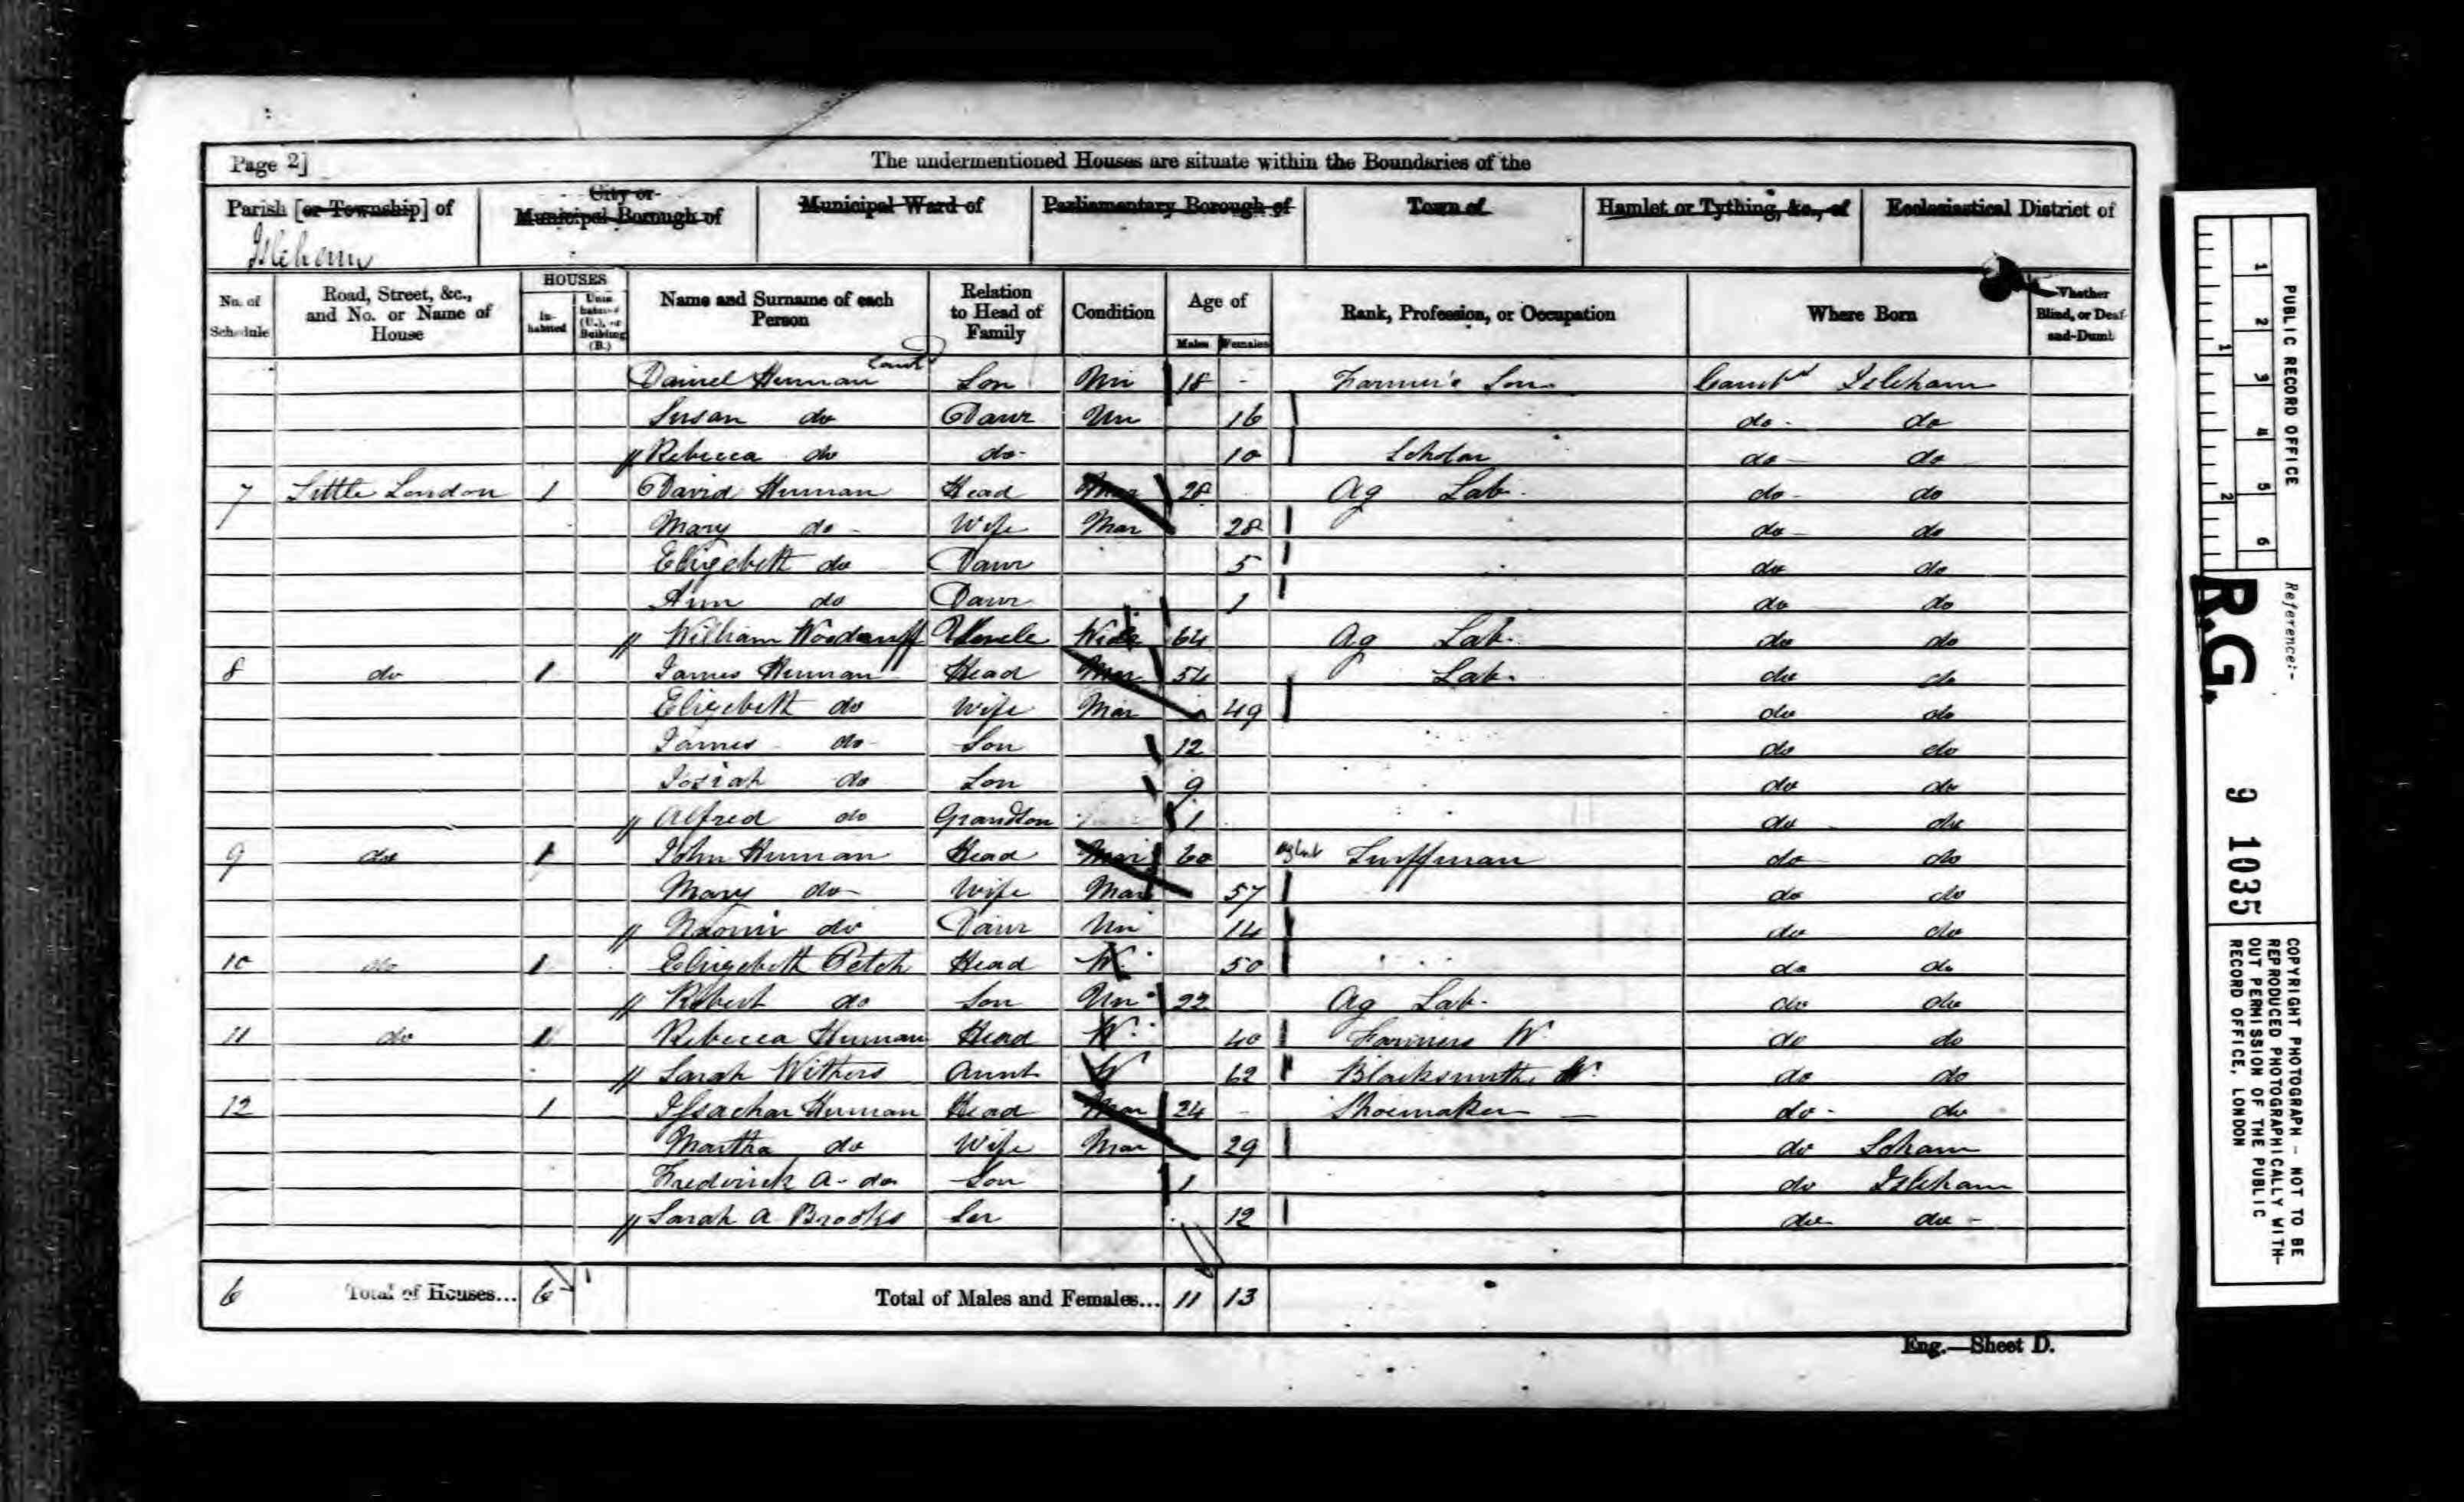 Page 2] The undermentioned Houses are situate within the Boundaries of the
Parish [or Township] of City or Municipal Borough of Municipal Ward of Parliamentary Borough of Town of Hamlet or Tything, &c., of Ecclesiastical District of
Isleham
No. of Schedule Road, Street, &c., and No. or Name of House HOUSES In-habited Unin-habited (U.), or Building (B.) Name and Surname of each Person Relation to Head of Family Condition Age of Males Females Rank, Profession, or Occupation Where Born Whether Blind, or Deaf-and-Dumb
Daniel Human Contd Son Un 18 - Farmer's Son Cambs Isleham
Susan do Daur Un 16 do - do
Rebecca do do - 10 Scholar do do
7 Little London 1 David Human Head Mar 28 Ag Lab. do - do
Mary do - Wife Mar 28 do - do
Elizebeth do Daur 5 do do
Ann do Daur 1 do do
William Woodruff Uncle Widr 64 Ag Lab. do do
8 do 1 James Human Head Mar 54 Lab. do do
Elizebeth do Wife Mar 49 do do
James do Son 12 do do
Josiah do Son 9 do do
Alfred do Grandson 1 do do
9 do 1 John Human Head Mar 60 Ag Lab Turffman do do
Mary do Wife Mar 57 do do
Naomi do Daur Un 14 do do
10 do 1 Elizebeth Petch Head W. 50 do do
Robert do Son Un 22 Ag Lab. do do
11 do 1 Rebecca Human Head W. 40 Farmers W. do do
Sarah Withers Aunt W 62 Blacksmiths W. do do
12 1 Issachar Human Head Mar 24 - Shoemaker do - do
Martha do Wife Mar 29 do Soham
Frederick A - do Son 1 do Isleham
Sarah A Brooks Ser 12 do do -
6 Total of Houses... 6 Total of Males and Females... 11 13
Eng.—Sheet D.
PUBLIC RECORD OFFICE
1 2 3 4 5 6
1 2
Reference:-
R.G. 9 1035
COPYRIGHT PHOTOGRAPH - NOT TO BE
REPRODUCED PHOTOGRAPHICALLY WITH-
OUT PERMISSION OF THE PUBLIC
RECORD OFFICE, LONDON